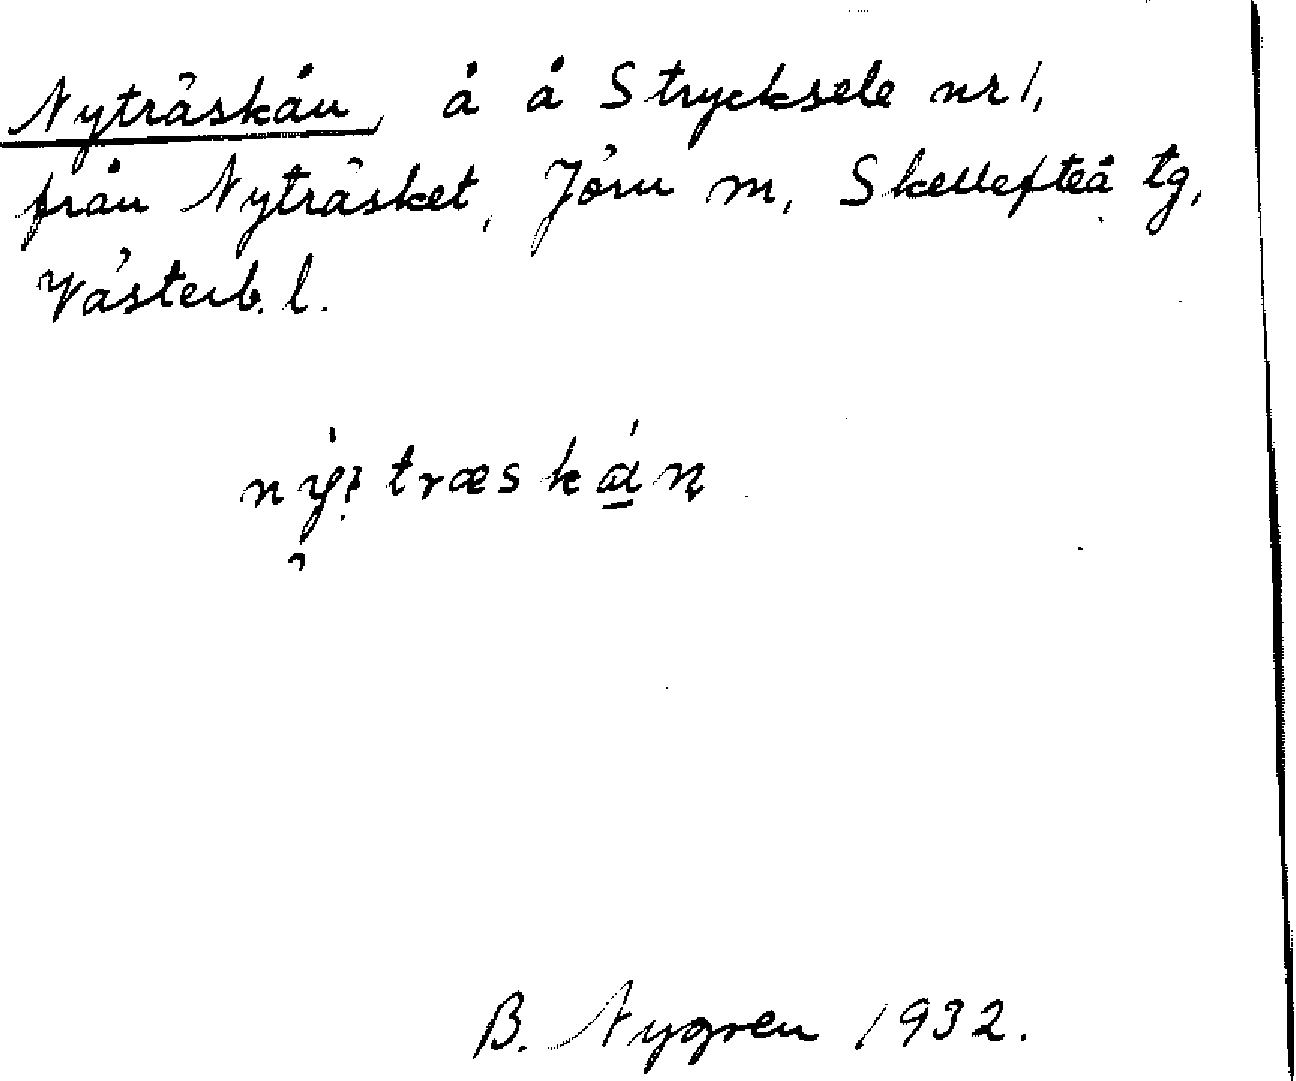 Nyträskån, å å Strycksele nr 1,
från Nyträsket, Jörn m, Skellefteå tg,
Västerb. l.
nỳ: træskán
B. Nygren 1932.